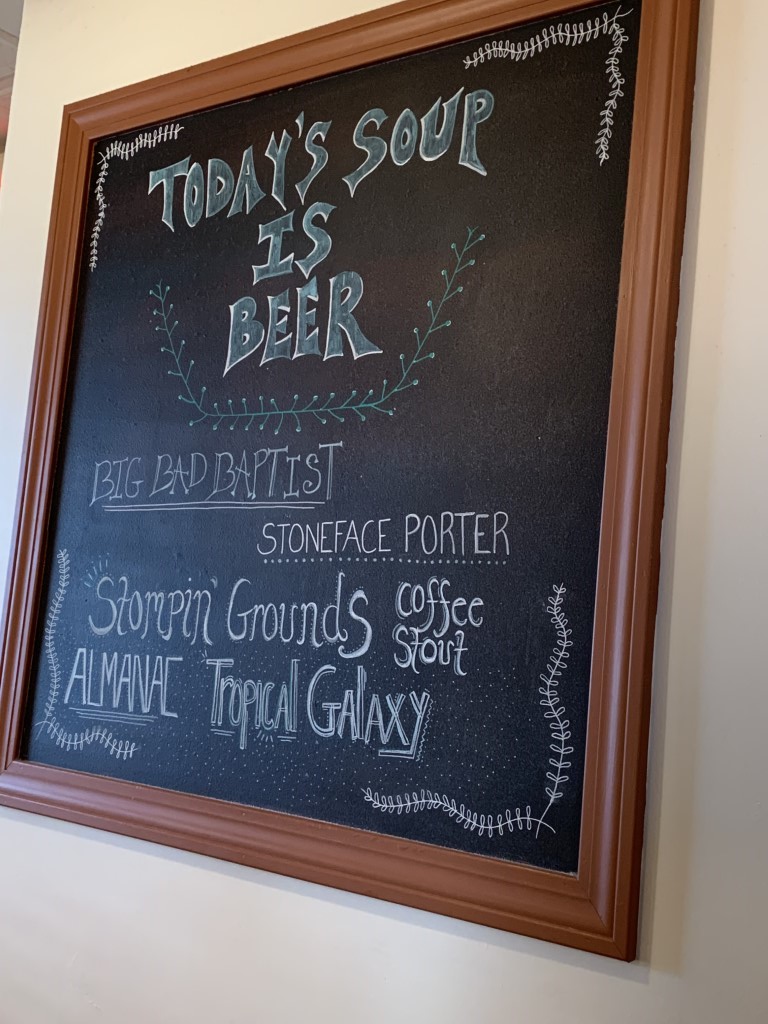 TODAY'S SOUP
IS
BEER
BIG BAD BAPTIST
STONEFACE PORTER
Stompin' Grounds Coffee Stout
ALMANAC Tropical Galaxy